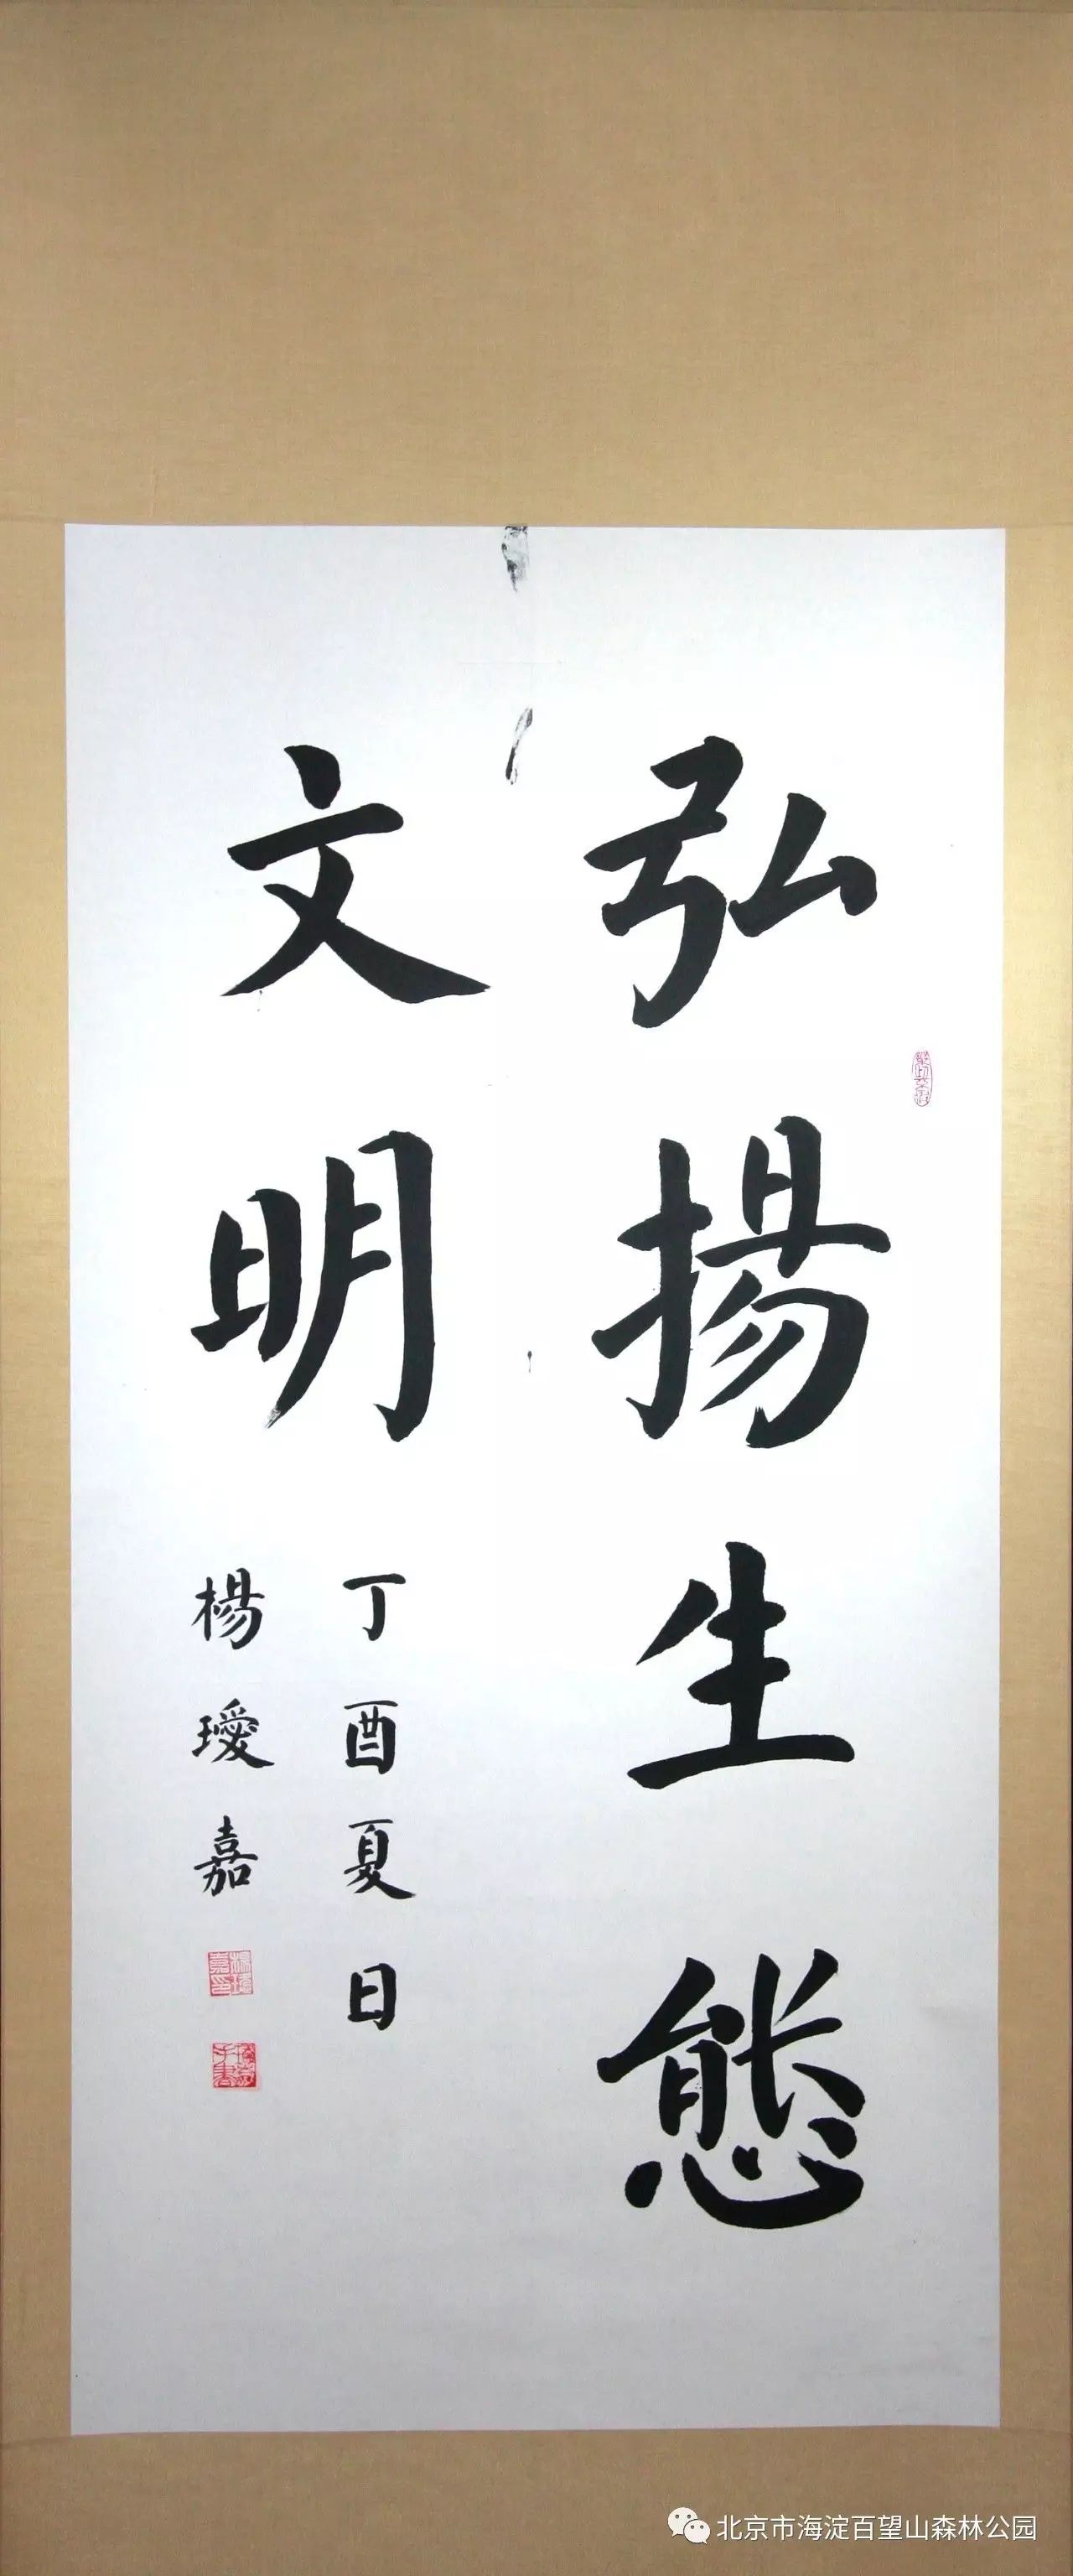 弘揚生態
文明
丁酉夏日
楊璦嘉
北京市海淀百望山森林公园